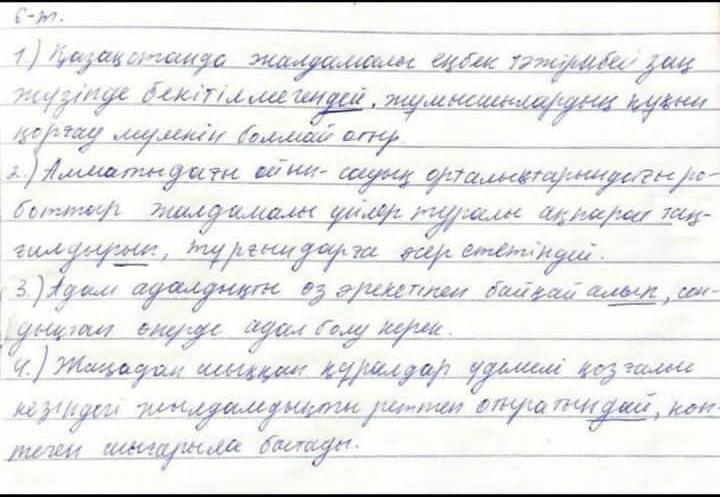 6-т.
1.) Қазақстанда жалдамалы еңбек тәжірибесі заң
жүзінде бекітілмегендей, жұмысшылардың құқын
қорғау мүмкін болмай отыр.
2.) Алматыдағы ойын-сауық орталықтарындағы ро-
боттар жалдамалы үйлер туралы ақпарат таң-
ғалдырып, тұрғындарға әсер ететіндей.
3.) Адам адалдықты өз әрекетінен байқай алып, сон-
дықтан өнерде адал болу керек.
4.) Жаңадан шыққан құралдар үдемелі қозғалыс
кезіндегі жылдамдықты реттеп отыратындай, көп-
теген шығарыла бастады.